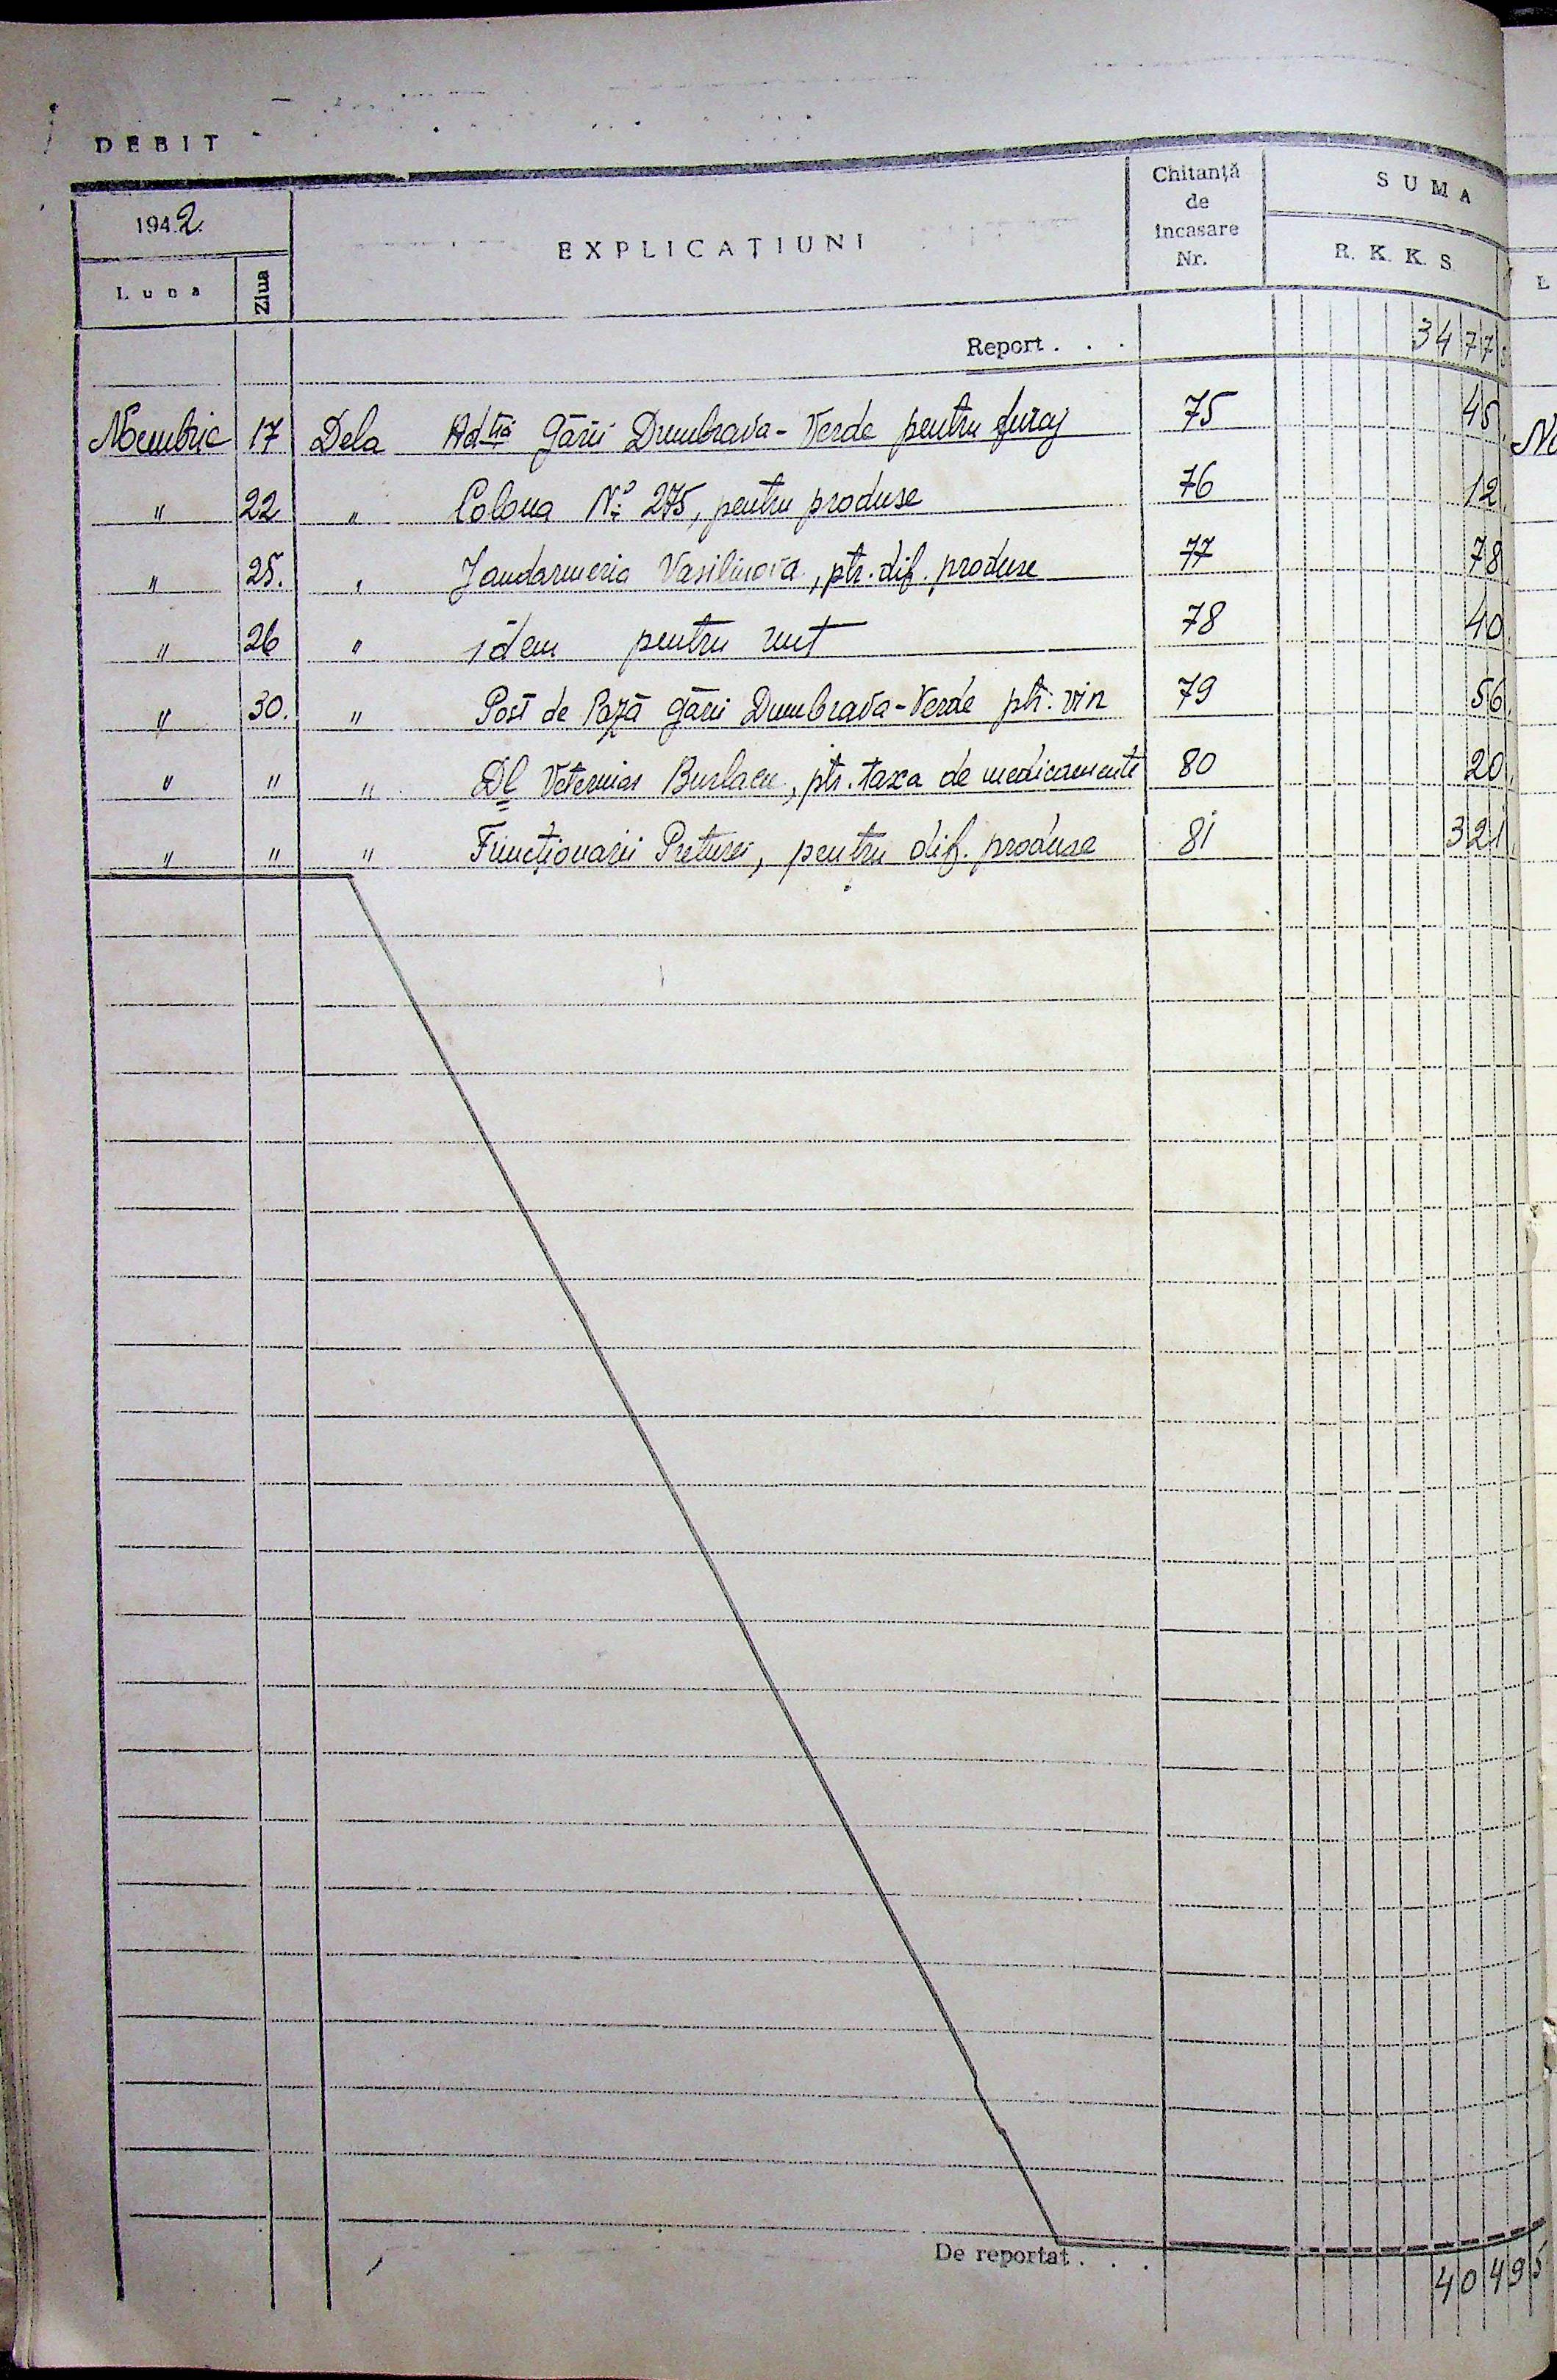 DEBIT
1942.
Luna
Ziua
EXPLICAȚIUNI
Chitanță
de
încasare
Nr.
SUMA
R. K. K. S
L
Report . . . 3477
Noembrie 17 Dela Adția Gării Dumbrava-Verde pentru furaj 75 45
" 22 " Coloua Nº 275, pentru produse 76 12
" 25. " Jandarmeria Vasilinova, ptr. dif. produse 77 78
" 26 " idem pentru unt 78 40
" 30. " Post de Pază Gării Dumbrava-Verde ptr. vin 79 56
" " " Dl Veterinar Burlacu, ptr. taxa de medicamente 80 20
" " " Funcționarii Preturei, pentru dif. produse 81 321
No
De reportat . . . 40495